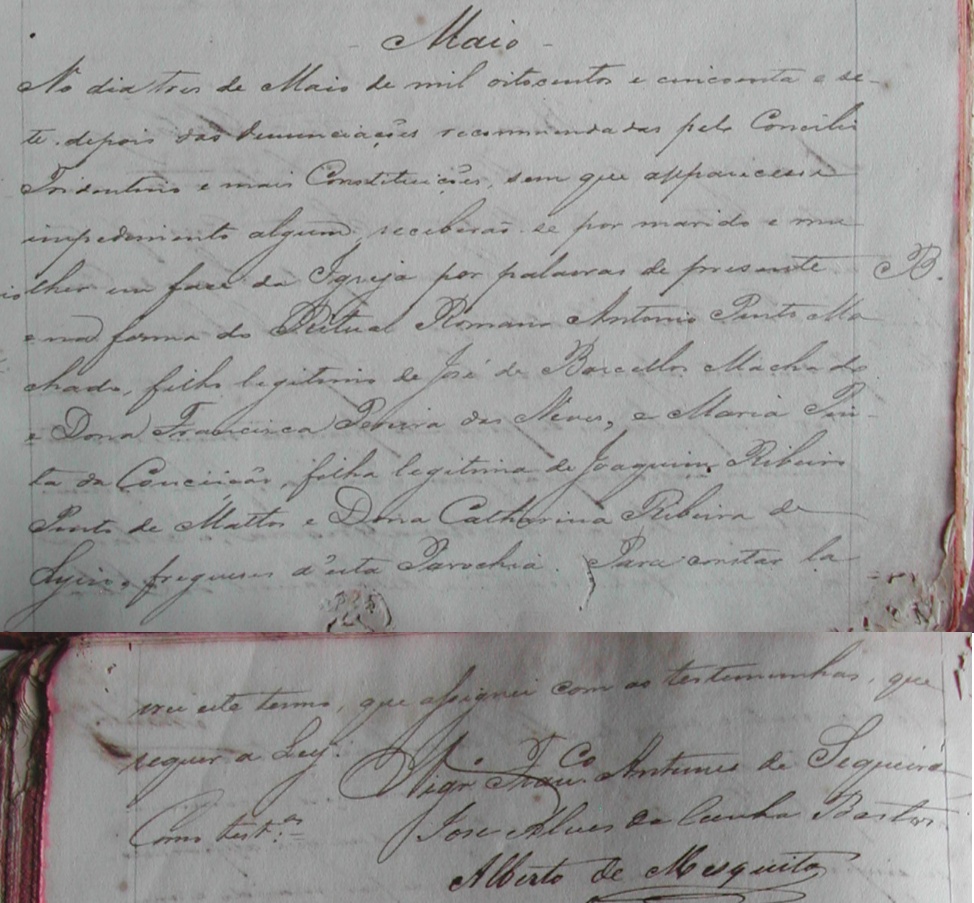 - Maio -
No dia tres de Maio de mil oitocentos e cincoenta e se-
te, depois das denunciações recommendadas pelo Concilio
Tridentino e mais Constituições, sem que apparecesse
impedimento algum, receberaõ-se por marido e mu
lher em face da Igreja por palavras de presente
B.
e na forma do Ritual Romano Antonio Pinto Ma
chado, filho legitimo de José de Barcellos Machado
e Dona Francisca Pereira das Neves, e Maria Pin-
ta da Conceição, filha legitima de Joaquim Ribeiro
Pinto de Mattos e Dona Catharina Ribeira de
freguezes d'esta Parochia. Para constar la
vrei este termo, que assignei com as testemunhas, que
requer a Ley.
Vigr.º Franc.co Antunes de Sequeira
Como test.as = Jose Alves da Cunha Bastos
Alberto de Mesquita